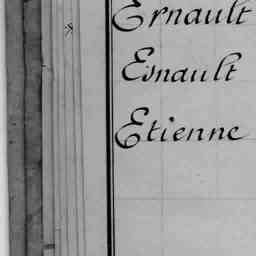 Ernault
Esnault
Etienne